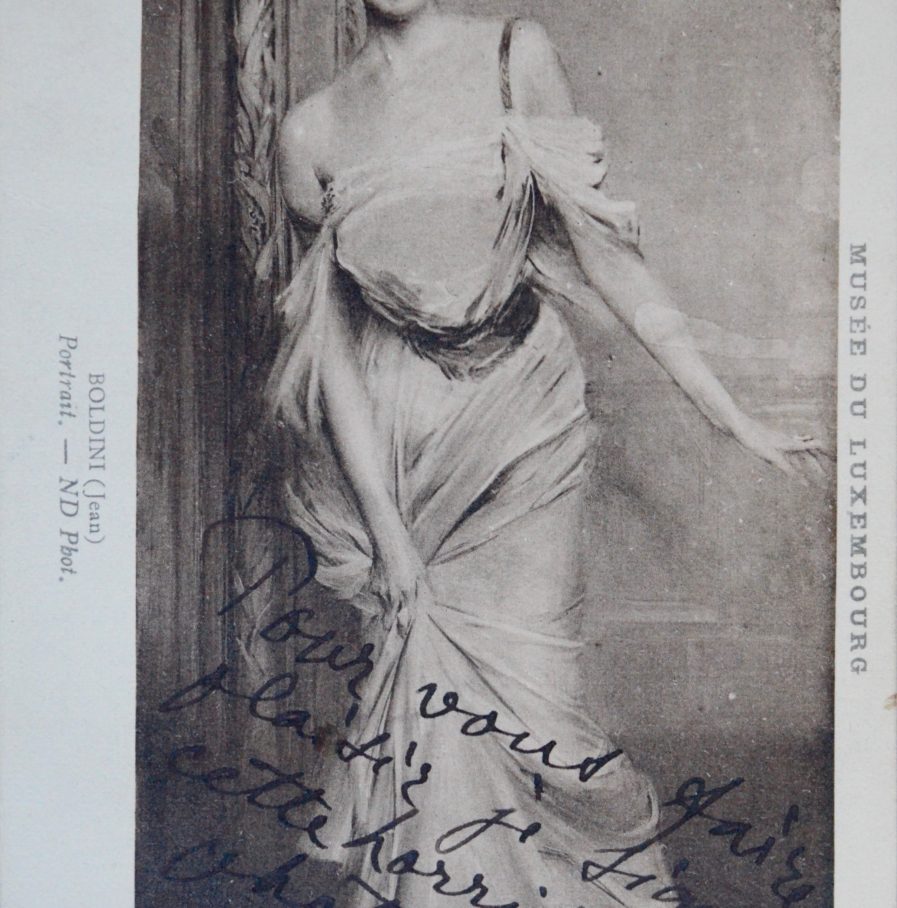 MUSÉE DU LUXEMBOURG
BOLDINI (Jean)
Portrait. — ND Phot.
Pour vous faire
plaisir je
cette